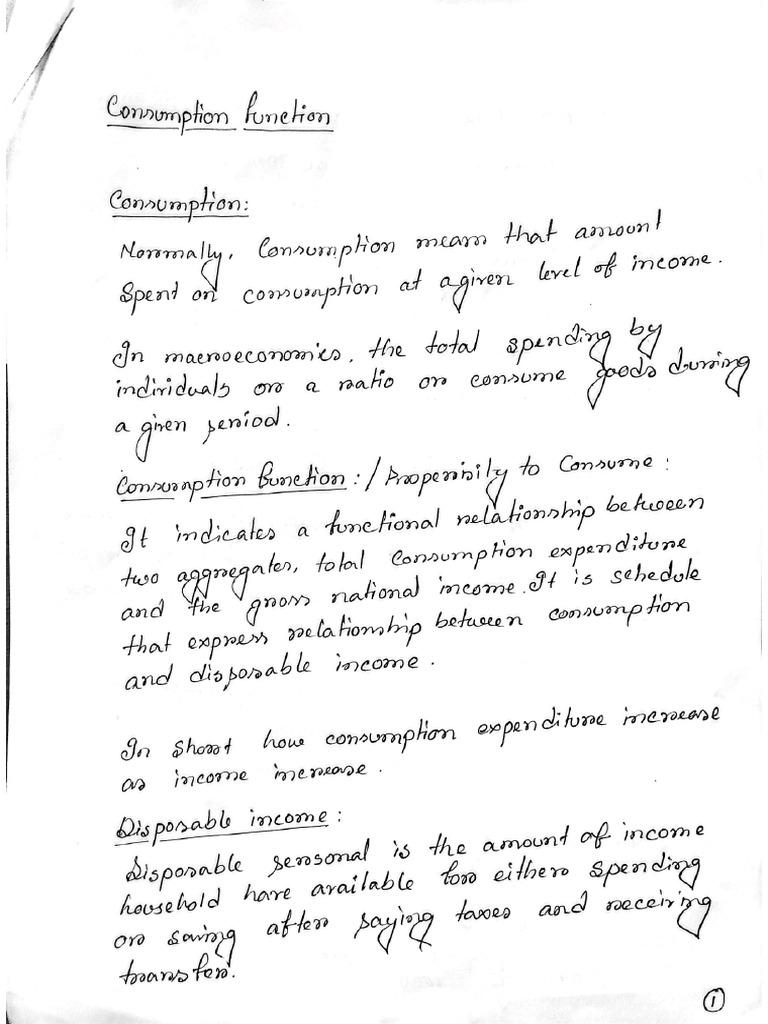 Consumption function
Consumption:
Normally, Consumption mean that amount
Spent on consumption at a given level of income.
In macroeconomics, the total spending by
individuals or a natio on consume goods during
a given period.
Consumption function:/Propensily to Consume:
It indicates a functional relationship between
two aggregates, total Consumption expenditure
and the gross national income. It is schedule
that express relationship between consumption
and disposable income.
In Short how consumption expenditure increase
as income increase.
Disposable income:
Disposable personal is the amount of income
household have available for either spending
or saving after paying taxes and receiving
transfer.
1